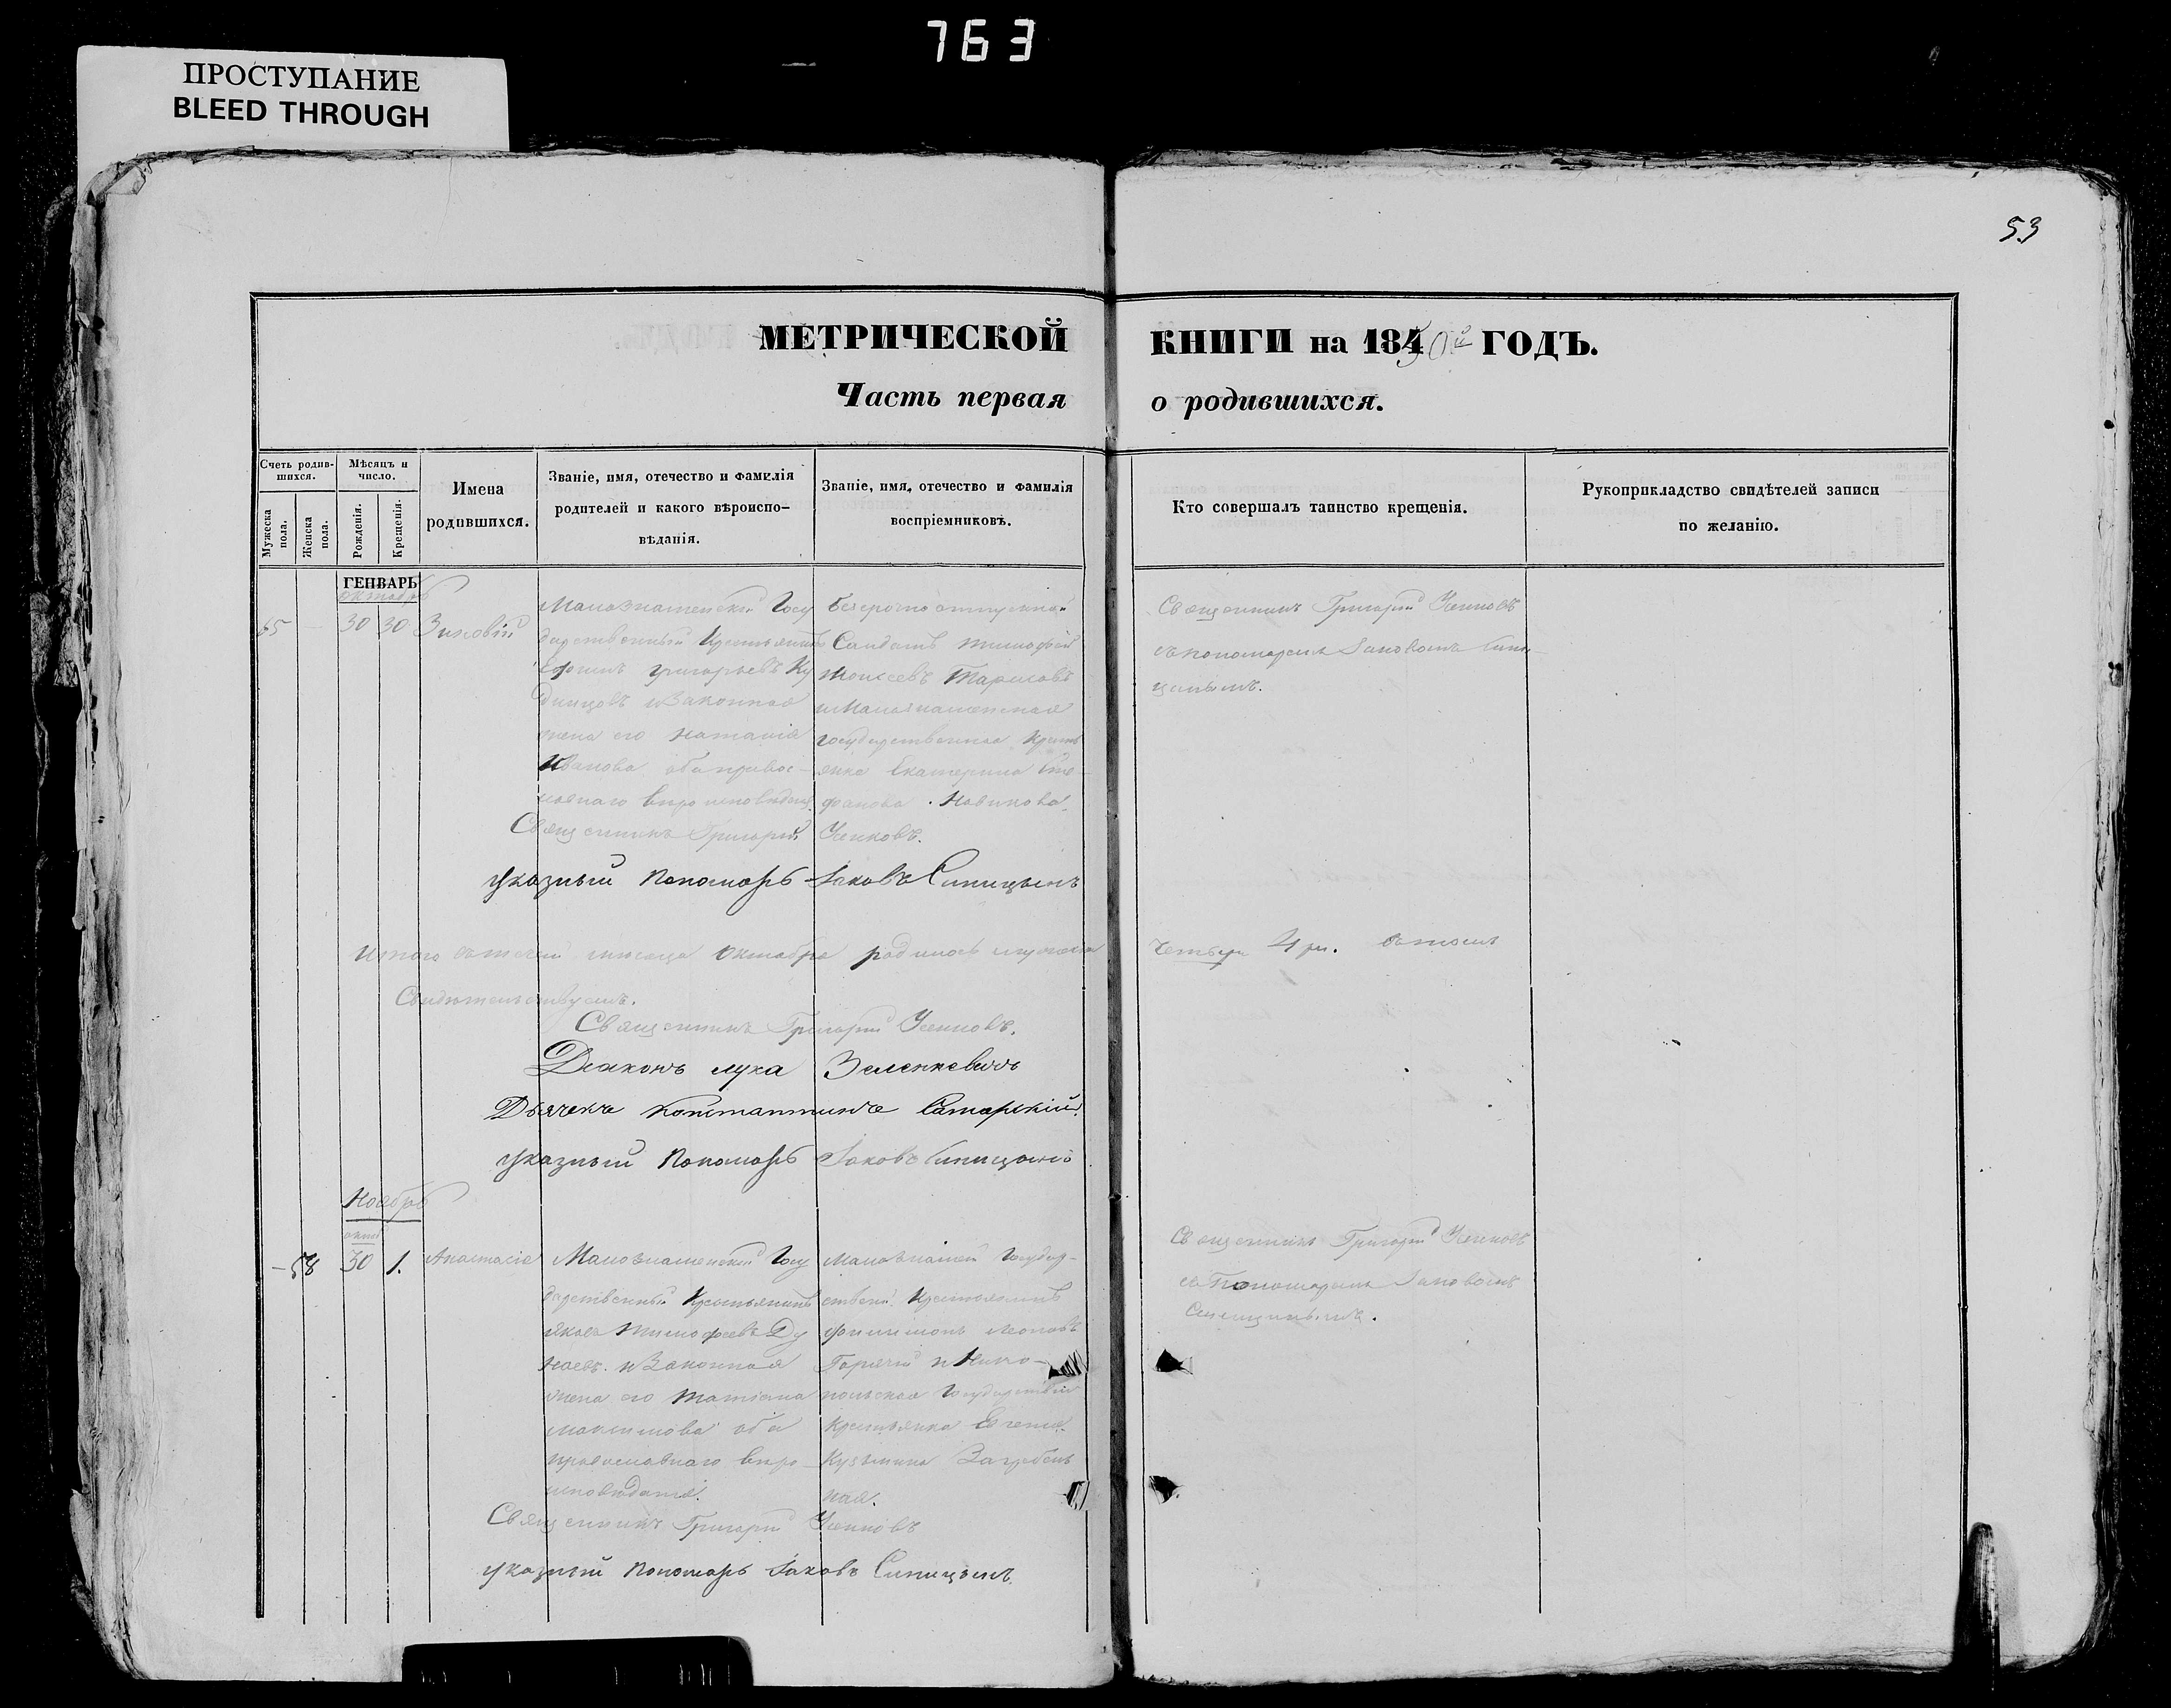 763
ПРОСТУПАНИЕ
BLEED THROUGH
53
МЕТРИЧЕСКОЙ КНИГИ на 1850й ГОДЪ.
Часть первая о родившихся.
Счетъ родив-
шихся.
Мужеска
пола.
Женска
пола.
Мѣсяцъ и
число.
Рожденія.
Крещенія.
Имена
родившихся.
Званіе, имя, отечество и фамилія
родителей и какого вѣроиспо-
вѣданія.
Званіе, имя, отечество и фамилія
воспріемниковъ.
Кто совершалъ таинство крещенія.
Рукоприкладство свидѣтелей записи
по желанію.
ГЕНВАРЬ
октябрь
65
30 30
Зиновій
Малознаменский Госу
дарственный Крестьянинъ
Ефимъ Григорьевъ Ку
динцовъ и Законная
жена его Наталія
Иванова оба правос-
лавнаго вѣро исповѣдан.
Безсрочно отпускной
Солдатъ Тимофей
Моисеевъ Тарасовъ
и Малознаменская
государственная Кресть
янка Екатерина Сте-
фанова Новикова.
Священникъ Григорій
съ пономаремъ Іаковомъ Сини-
цынымъ.
Священникъ Григорій
указный Пономарь Іаковъ Синицынъ
Итого въ течени мѣсяца Октября родилось мужеска четыре 4 ре.
Свидѣтельствуемъ.
Священникъ Григорій
Діаконъ Лука Зеленкевичъ
Дьячекъ Константинъ Самарскій.
указный Пономарь Іаковъ Синицынъ
Ноябрь
окт
58
30 1.
Анастасія
Малознаменский Госу
дарственный Крестьянинъ
Яковъ Тимофеевъ Ду
наевъ и Законная
жена его Татіана
Максимова оба
православнаго вѣро-
исповѣданія.
Малознамен Государ-
ствен. Крестьянинъ
Филимонъ Леоновъ
Горячій и Нико-
польская Государствен
Крестьянка Евгенія
Кузьмина Загребель
ная.
Священникъ Григорій
съ Пономаремъ Іаковомъ
Синицынымъ.
Священникъ Григорій
указный Пономарь Іаковъ Синицынъ.